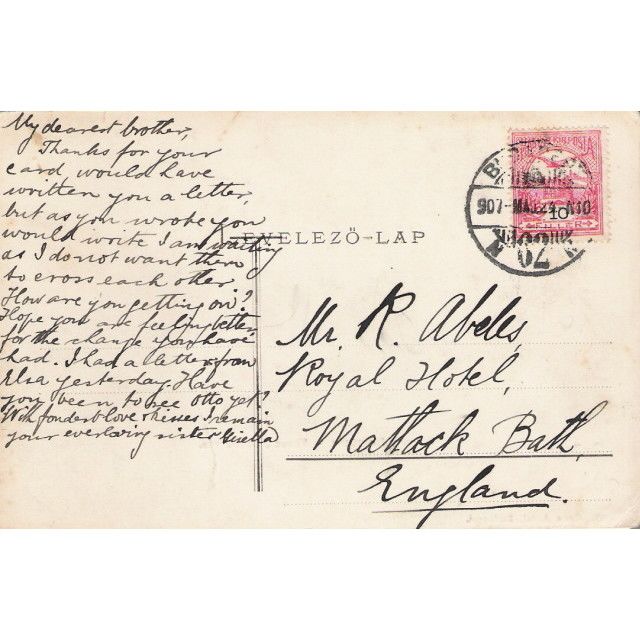 My dearest brother,
Thanks for your
card, would have
written you a letter,
but as you wrote you
would write I am waiting
as I do not want them
to cross each other.
How are you getting on?
Hope you are feeling better
for the change you have
had. I had a letter from
Elsa yesterday. Have
you been to see Otto yet?
With fondest love & kisses I remain
your everloving sister Gisella
LEVELEZŐ-LAP
Mr. R. Abeles,
Royal Hotel,
Mattock Bath,
England.
10
907